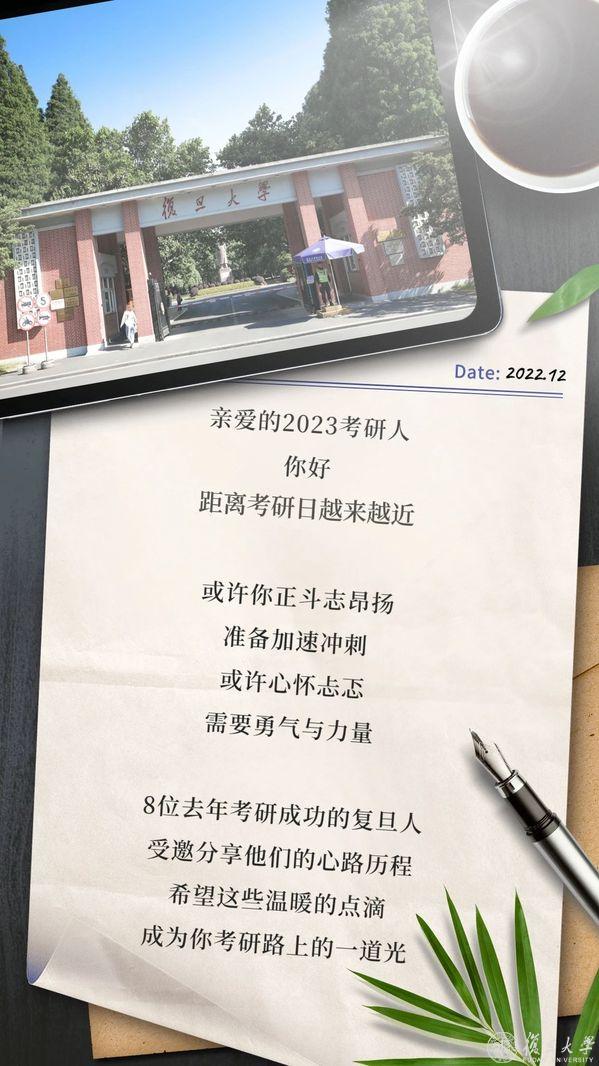 復旦大學
Date: 2022.12
亲爱的2023考研人
你好
距离考研日越来越近
或许你正斗志昂扬
准备加速冲刺
或许心怀忐忑
需要勇气与力量
8位去年考研成功的复旦人
受邀分享他们的心路历程
希望这些温暖的点滴
成为你考研路上的一道光
復旦大學
FUDAN UNIVERSITY